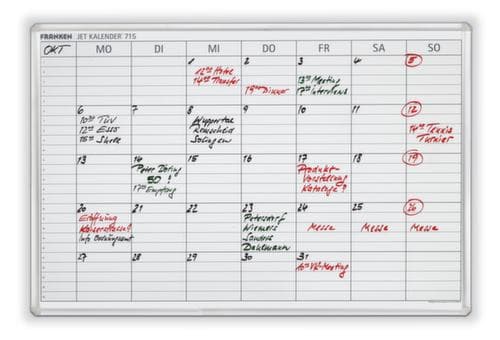 FRANKEN JET KALENDER 715
OKT MO DI MI DO FR SA SO
1 2 3 4 5
12⁰⁰ Hotel
14⁰⁰ Transfer
19⁰⁰ Dinner
13⁰⁰ Meeting
17⁰⁰ Interviews
6 7 8 9 10 11 12
10³⁰ TÜV
12⁰⁰ Esso
15⁰⁰ Shell
Wuppertal
Remscheid
Solingen
14⁰⁰ Tennis
Turnier
13 14 15 16 17 18 19
Peter Döring
50 !
17⁰⁰ Empfang
Produkt-
Vorstellung
Kataloge?
20 21 22 23 24 25 26
Eröffnung
Kaiserstraße 9
Info
Petersdorf
Niemers
Sanders
Dahlmann
Messe Messe Messe
27 28 29 30 31
10⁰⁰ VK-Meeting